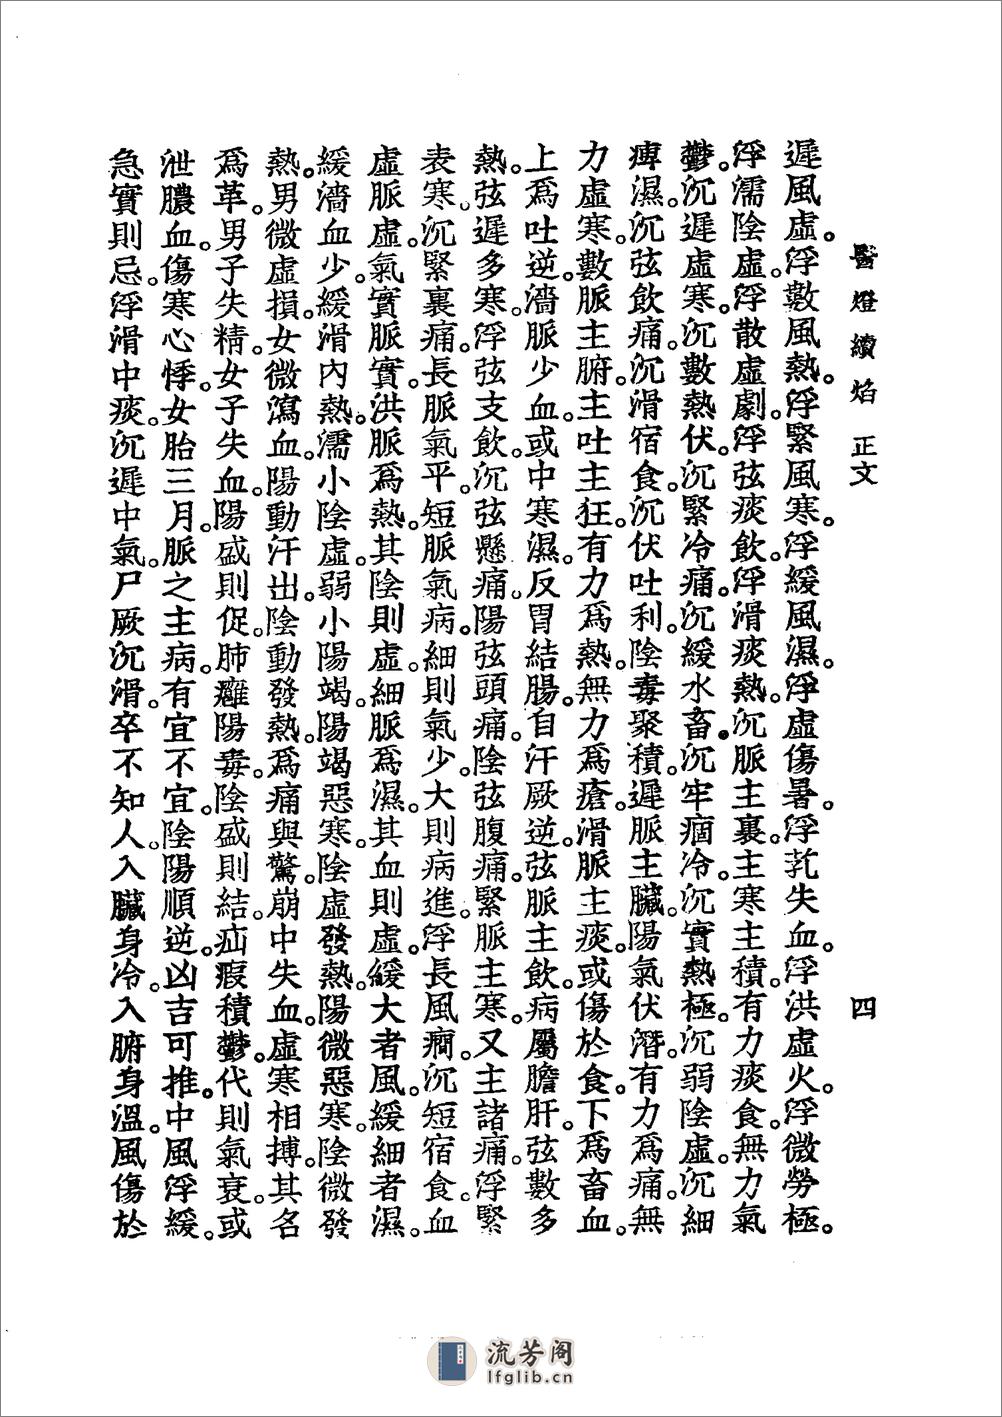 醫燈續焰 正文 四
遲風虛。浮數風熱。浮緊風寒。浮緩風濕。浮虛傷暑。浮芤失血。浮洪虛火。浮微勞極。
浮濡陰虛。浮散虛劇。浮弦痰飲。浮滑痰熱。沉脈主裏。主寒主積。有力痰食。無力氣
鬱。沉遲虛寒。沉數熱伏。沉緊冷痛。沉緩水畜。沉牢痼冷。沉實熱極。沉弱陰虛。沉細
痺濕。沉弦飲痛。沉滑宿食。沉伏吐利。陰毒聚積。遲脈主臟。陽氣伏潛。有力爲痛。無
力虛寒。數脈主腑。主吐主狂。有力爲熱。無力爲瘡。滑脈主痰。或傷於食。下爲畜血。
上爲吐逆。濇脈少血。或中寒濕。反胃結腸。自汗厥逆。弦脈主飲。病屬膽肝。弦數多
熱。弦遲多寒。浮弦支飲。沉弦懸痛。陽弦頭痛。陰弦腹痛。緊脈主寒。又主諸痛。浮緊
表寒。沉緊裏痛。長脈氣平。短脈氣病。細則氣少。大則病進。浮長風癇。沉短宿食。血
虛脈虛。氣實脈實。洪脈爲熱。其陰則虛。細脈爲濕。其血則虛。緩大者風。緩細者濕。
緩濇血少。緩滑內熱。濡小陰虛。弱小陽竭。陽竭惡寒。陰虛發熱。陽微惡寒。陰微發
熱。男微虛損。女微瀉血。陽動汗出。陰動發熱。爲痛與驚。崩中失血。虛寒相搏。其名
爲革。男子失精。女子失血。陽盛則促。肺癰陽毒。陰盛則結。疝瘕積鬱。代則氣衰。或
泄膿血。傷寒心悸。女胎三月。脈之主病。有宜不宜。陰陽順逆。凶吉可推。中風浮緩。
急實則忌。浮滑中痰。沉遲中氣。尸厥沉滑。卒不知人。入臟身冷。入腑身溫。風傷於
流芳阁
lfglib.cn